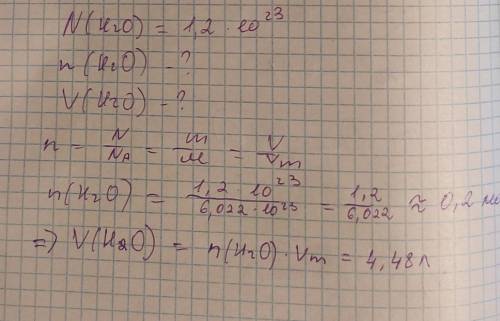 N(H₂O) = 1,2 · 10²³
n(H₂O) - ?
V(H₂O) - ?
n = N/Nₐ = m/M = V/Vm
n(H₂O) = 1,2 · 10²³ / 6,022 · 10²³ = 1,2 / 6,022 ≈ 0,2 мо
=> V(H₂O) = n(H₂O) · Vm = 4,48 л